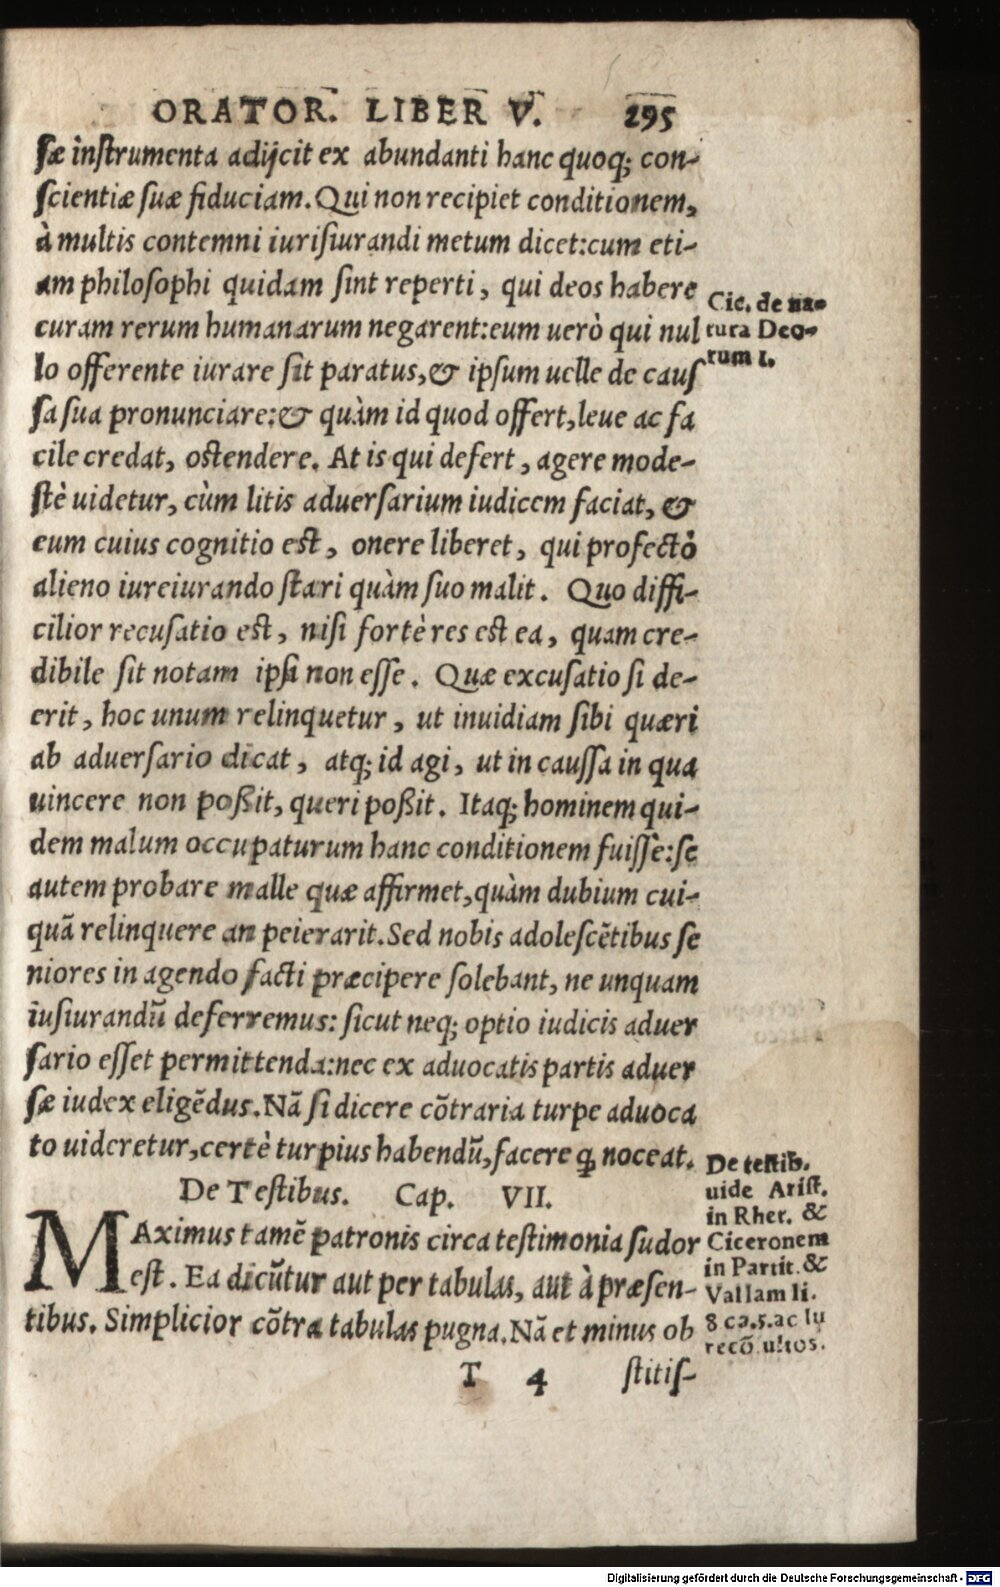 ORATOR. LIBER V. 295
ſæ inſtrumenta adijcit ex abundanti hanc quoq; con-
ſcientiæ ſuæ fiduciam. Qui non recipiet conditionem,
à multis contemni iuriſiurandi metum dicet: cum eti-
am philoſophi quidam ſint reperti, qui deos habere
curam rerum humanarum negarent: eum uerò qui nul
lo offerente iurare ſit paratus, & ipſum uelle de cauſ
ſa ſua pronunciare: & quàm id quod offert, leue ac fa
cile credat, oſtendere. At is qui defert, agere mode-
ſtè uidetur, cùm litis aduerſarium iudicem faciat, &
eum cuius cognitio eſt, onere liberet, qui profectò
alieno iureiurando ſtari quàm ſuo malit. Quo diffi-
cilior recuſatio eſt, niſi fortè res eſt ea, quam cre-
dibile ſit notam ipſi non eſſe. Quæ excuſatio ſi de-
erit, hoc unum relinquetur, ut inuidiam ſibi quæri
ab aduerſario dicat, atq; id agi, ut in cauſſa in qua
uincere non poßit, queri poßit. Itaq; hominem qui-
dem malum occupaturum hanc conditionem fuiſſe: ſe
autem probare malle quæ affirmet, quàm dubium cui-
quã relinquere an peierarit. Sed nobis adoleſcẽtibus ſe
niores in agendo facti præcipere ſolebant, ne unquam
iuſiurandũ deferremus: ſicut neq; optio iudicis aduer
ſario eſſet permittenda: nec ex aduocatis partis aduer
ſæ iudex eligẽdus. Nã ſi dicere cõtraria turpe aduoca
to uideretur, certè turpius habendũ, facere ꝙ noceat.
De Teſtibus. Cap. VII.
MAximus tamẽ patronis circa teſtimonia ſudor
eſt. Ea dicũtur aut per tabulas, aut à præſen-
tibus. Simplicior cõtra tabulas pugna. Nã et minus ob
T 4 ſtitiſ-
Cic. de na-
tura Deo-
rum 1.
De teſtib.
uide Ariſt.
in Rhet. &
Ciceronem
in Partit. &
Vallam li.
8 ca. 5. ac Iu
recõſultos.
Digitalisierung gefördert durch die Deutsche Forschungsgemeinschaft - DFG